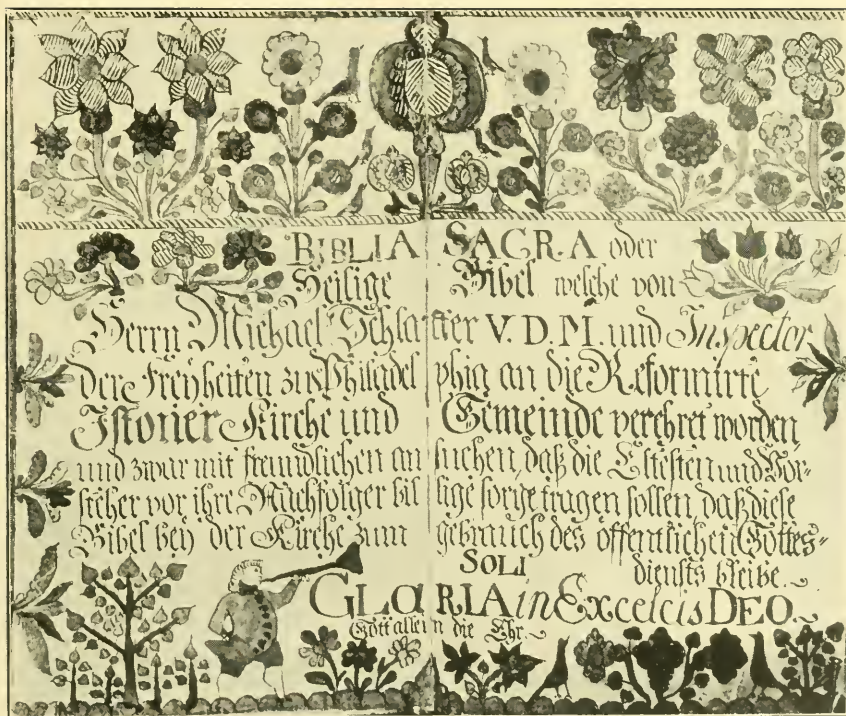 BIBLIA SACRA oder
Heilige Bibel welche von
Herrn Michael Schlatter V. D. M. und Inspector
der Freyheiten zu Philadelphia an die Reformirte
Kirche und Gemeinde verehret worden
und zwar mit freundlichen ansuchen, daß die Eltesten und Vor-
steher vor ihre Nachfolger billige sorge tragen sollen, daß diese
Bibel bey der Kirche zum gebrauch des öffentlichen Gottes-
diensts bleibe.
SOLI
GLORIA in Excelcis DEO.
Gott allein die Ehr.